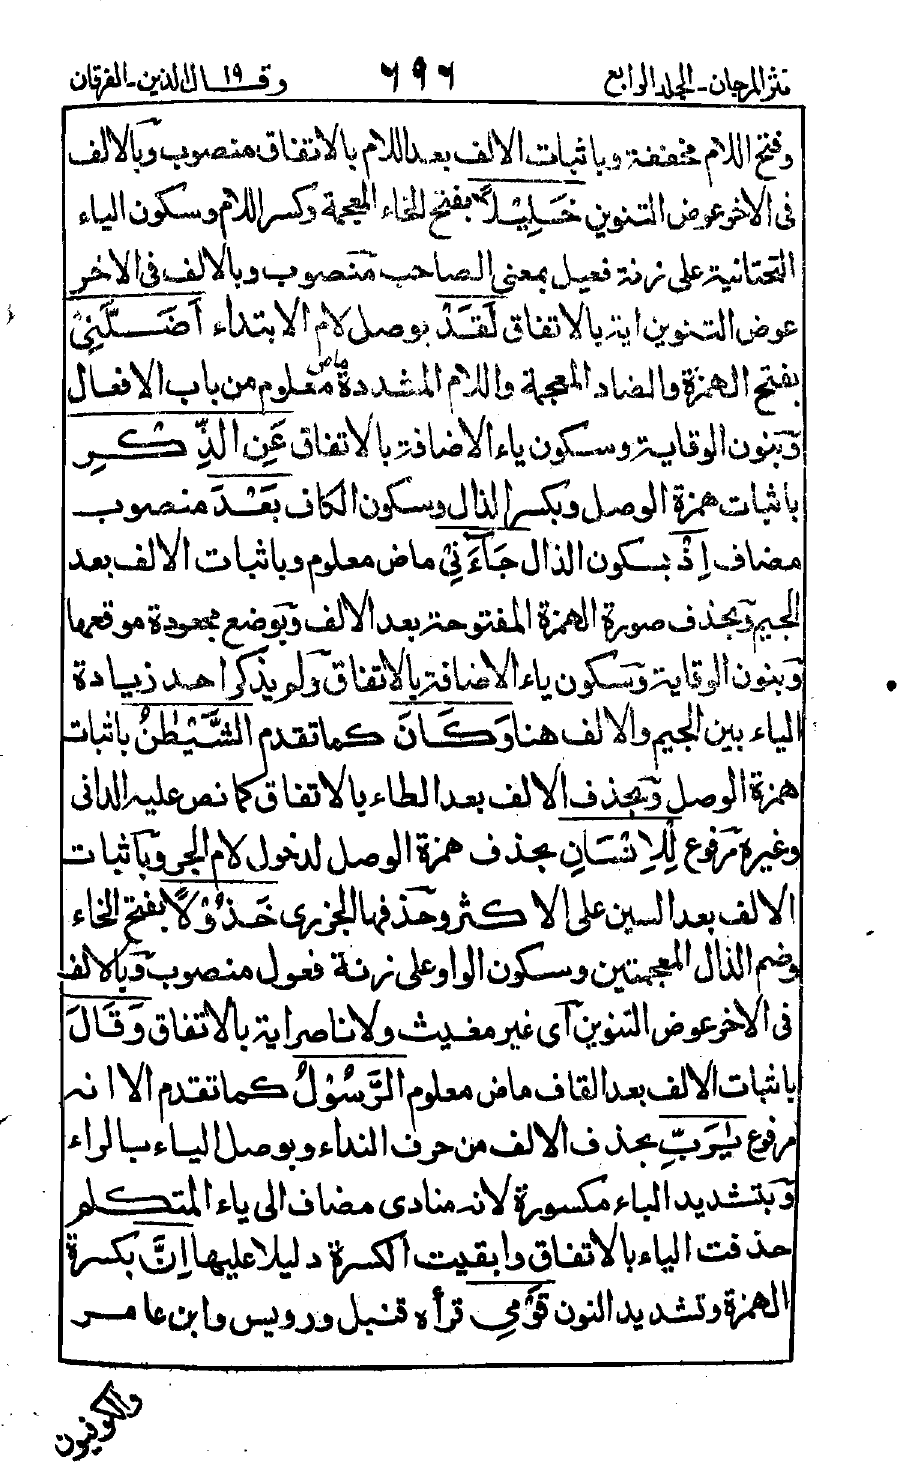 نثر المرجان - الجلد الرابع ٦٩٦ وقال الذين ١٩ - الفرقان
وفتح اللام مخففة وباثبات الالف بعد اللام بالاتفاق منصوب وبالالف
فى الاخر عوض التنوين خَلِيْلًا بفتح الخاء المعجمة وكسر اللام وسكون الياء
التحتانية على زنة فعيل بمعنى الصاحب منصوب وبالالف فى الاخر
عوض التنوين اية بالاتفاق لَقَدْ بوصل لام الابتداء اَضَلَّنِىْ
بفتح الهمزة والضاد المعجمة واللام المشددة ماض معلوم من باب الافعال
وبنون الوقاية وسكون ياء الاضافة بالاتفاق عَنِ الذِّكْرِ
باثبات همزة الوصل وبكسر الذال وسكون الكاف بَعْدَ منصوب
مضاف اِذْ بسكون الذال جَآءَنِىْ ماض معلوم وباثبات الالف بعد
الجيم وبحذف صورة الهمزة المفتوحة بعد الالف وبوضع مجعودة موقعها
وبنون الوقاية وسكون ياء الاضافة بالاتفاق ولم يذكر احد زيادة
الياء بين الجيم والالف هنا وَكَانَ كما تقدم الشَّيْطٰنُ باثبات
همزة الوصل وبحذف الالف بعد الطاء بالاتفاق كما نص عليه الدانى
وغيره مرفوع لِلْاِنْسَانِ بحذف همزة الوصل لدخول لام الجر وباثبات
الالف بعد السين على الاكثر وحذفها الجزرى خَذُوْلًا بفتح الخاء
وضم الذال المعجمتين وسكون الواو على زنة فعول منصوب وبالالف
فى الاخر عوض التنوين اى غير مغيث ولا ناصر اية بالاتفاق وَقَالَ
باثبات الالف بعد القاف ماض معلوم الرَّسُوْلُ كما تقدم الا انه
مرفوع يٰرَبِّ بحذف الالف من حرف النداء وبوصل الياء بالراء
وبتشديد الباء مكسورة لانه منادى مضاف الى ياء المتكلم
حذفت الياء بالاتفاق وابقيت الكسرة دليلا عليها اِنَّ بكسرة
الهمزة وتشديد النون قَوْمِى قرأه قنبل ورويس وابن عامر
والكوفيون